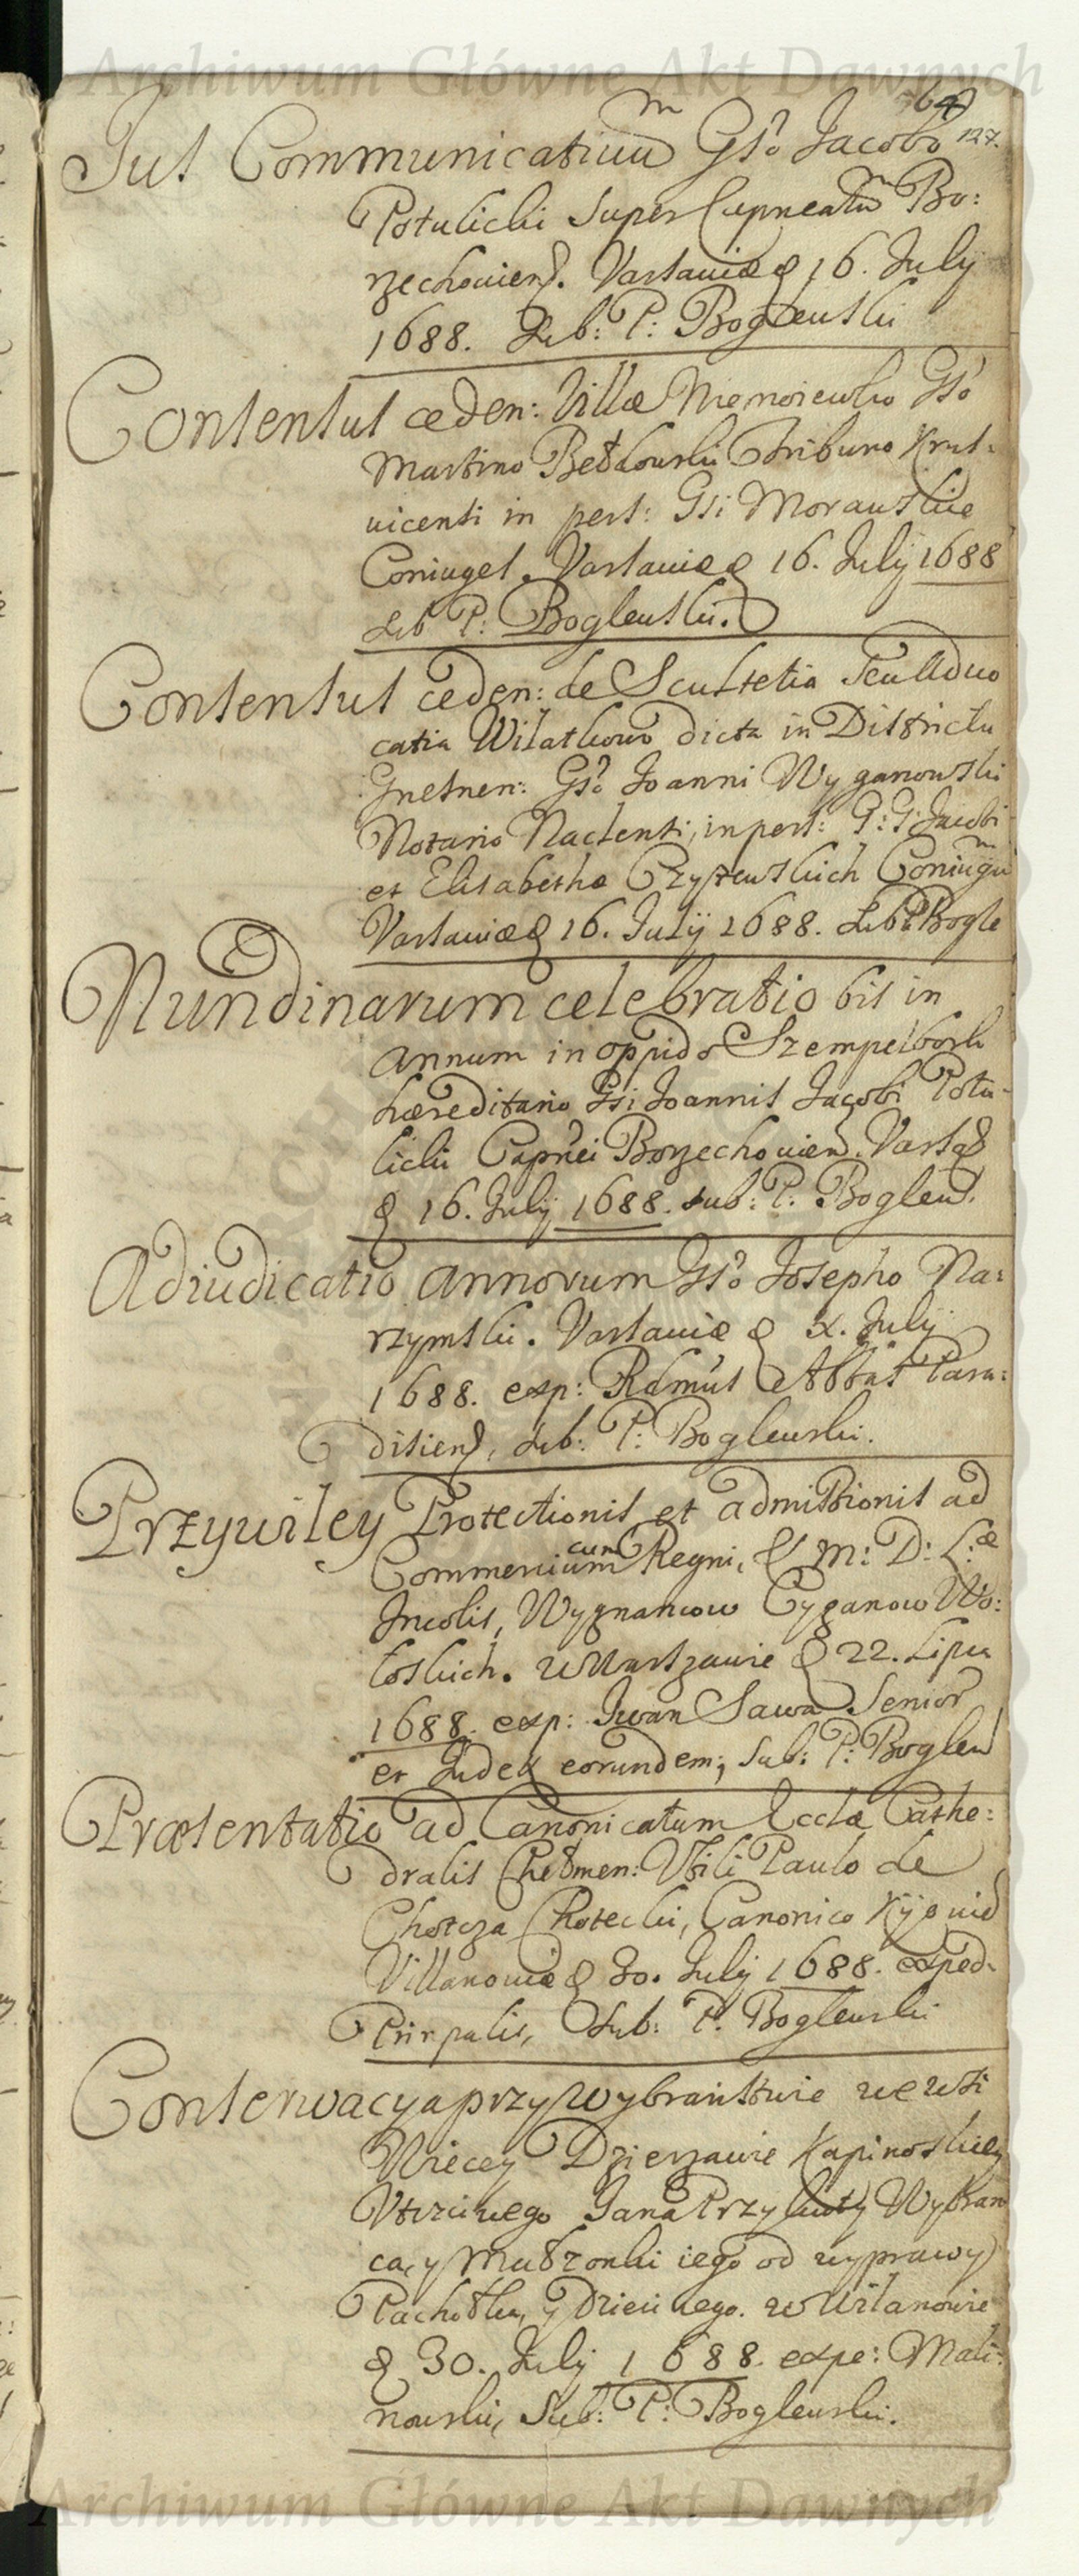 Archiwum Główne Akt Dawnych
64
127.
Jus Communicativũ Gso Jacobo
Potulicki super Capneatũ Bo:
rzechovien. Varsaviæ d 16. July
1688. sub: P: Boglewski
Consensus ceden: Villæ Niemoiewko Gso
Martino Betkowski Tribuno Krus-
vicensi in pers: Gsi Morawskie
Coniuges. Varsaviæ d 16. July 1688
sub P: Boglewski.
Consensus ceden: de Scultetia seu Advo
catia Wilatkowo dicta in Districtu
Gnesnen: Gso Joanni Wyganowski
Notario Naclensi, in pers: G: G: Jacobi
et Elisabethæ Czyżewskich Coniugũ
Varsaviæ d 16. July 1688. sub P Bogle
Nundinarum celebratio bis in
annum in oppido Szempelbork
hæreditario Gsi Joannis Jacobi Potu-
licki Capnei Borzechovien. Vars
d 16. July 1688. sub: P: Boglew.
Adiudicatio annorum Gso Josepho Na:
rzymski. Varsaviæ d X. July
1688. exp: Rdmus Abbas Para:
disien, sub: P: Boglewski.
Przywiley Protectionis et admissionis ad
Commercium cum Regni, et M: D: L:æ
Incolis, Wygnancow Cyganow Wo:
łoskich. w Warszawie d 22. Lipca
1688. exp: Iwan Sawa Senior
et Judex eorundem, sub: P: Boglew
Præsentatio ad Canonicatum Ecclæ Cathe:
dralis Chełmen: Vbili Paulo de
Chotcza Chotecki, Canonico Kijovie
Villanoviæ d 30. July 1688. exped.
Prinpalis, sub: P. Boglewski
Conserwacya przy Wybraństwie we wsi
Wiecey Dzierzawie Kapinoskiey
Vtciwego Jana Przybyły Wybran
ca, y Małżonki iego od wyprawy
Pachołka, y Dzieci iego. w Wilanowie
d 30. July 1688. expe: Mali:
nowski, sub: P: Boglewski.
Archiwum Główne Akt Dawnych